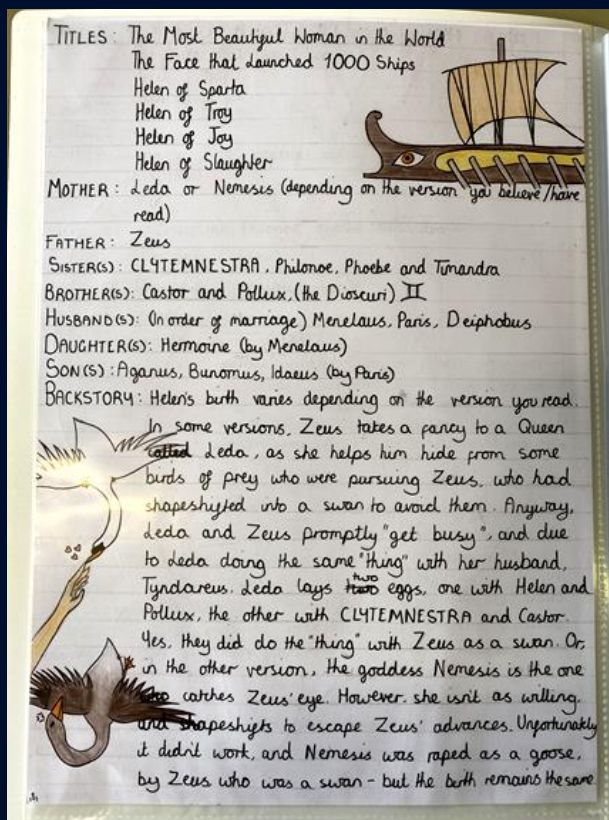 TITLES: The Most Beautiful Woman in the World
The Face that Launched 1000 Ships
Helen of Sparta
Helen of Troy
Helen of Joy
Helen of Slaughter
MOTHER: Leda or Nemesis (depending on the version you believe/have
read)
FATHER: Zeus
SISTER(S): CLYTEMNESTRA, Philonoe, Phoebe and Timandra
BROTHER(S): Castor and Pollux, (the Dioscuri) ♊
HUSBAND(S): (In order of marriage) Menelaus, Paris, Deiphobus
DAUGHTER(S): Hermoine (by Menelaus)
SON(S): Aganus, Bunomus, Idaeus (by Paris)
BACKSTORY: Helen's birth varies depending on the version you read.
In some versions, Zeus takes a fancy to a Queen
called Leda, as she helps him hide from some
birds of prey who were pursuing Zeus, who had
shapeshifted into a swan to avoid them. Anyway,
Leda and Zeus promptly "get busy", and due
to Leda doing the same "thing" with her husband,
Tyndareus. Leda lays two eggs, one with Helen and
Pollux, the other with CLYTEMNESTRA and Castor.
Yes, they did do the "thing" with Zeus as a swan. Or,
in the other version, the goddess Nemesis is the one
catches Zeus' eye. However, she isn't as willing,
and shapeshifts to escape Zeus' advances. Unfortunately
it didn't work, and Nemesis was raped as a goose,
by Zeus who was a swan - but the birth remains the same